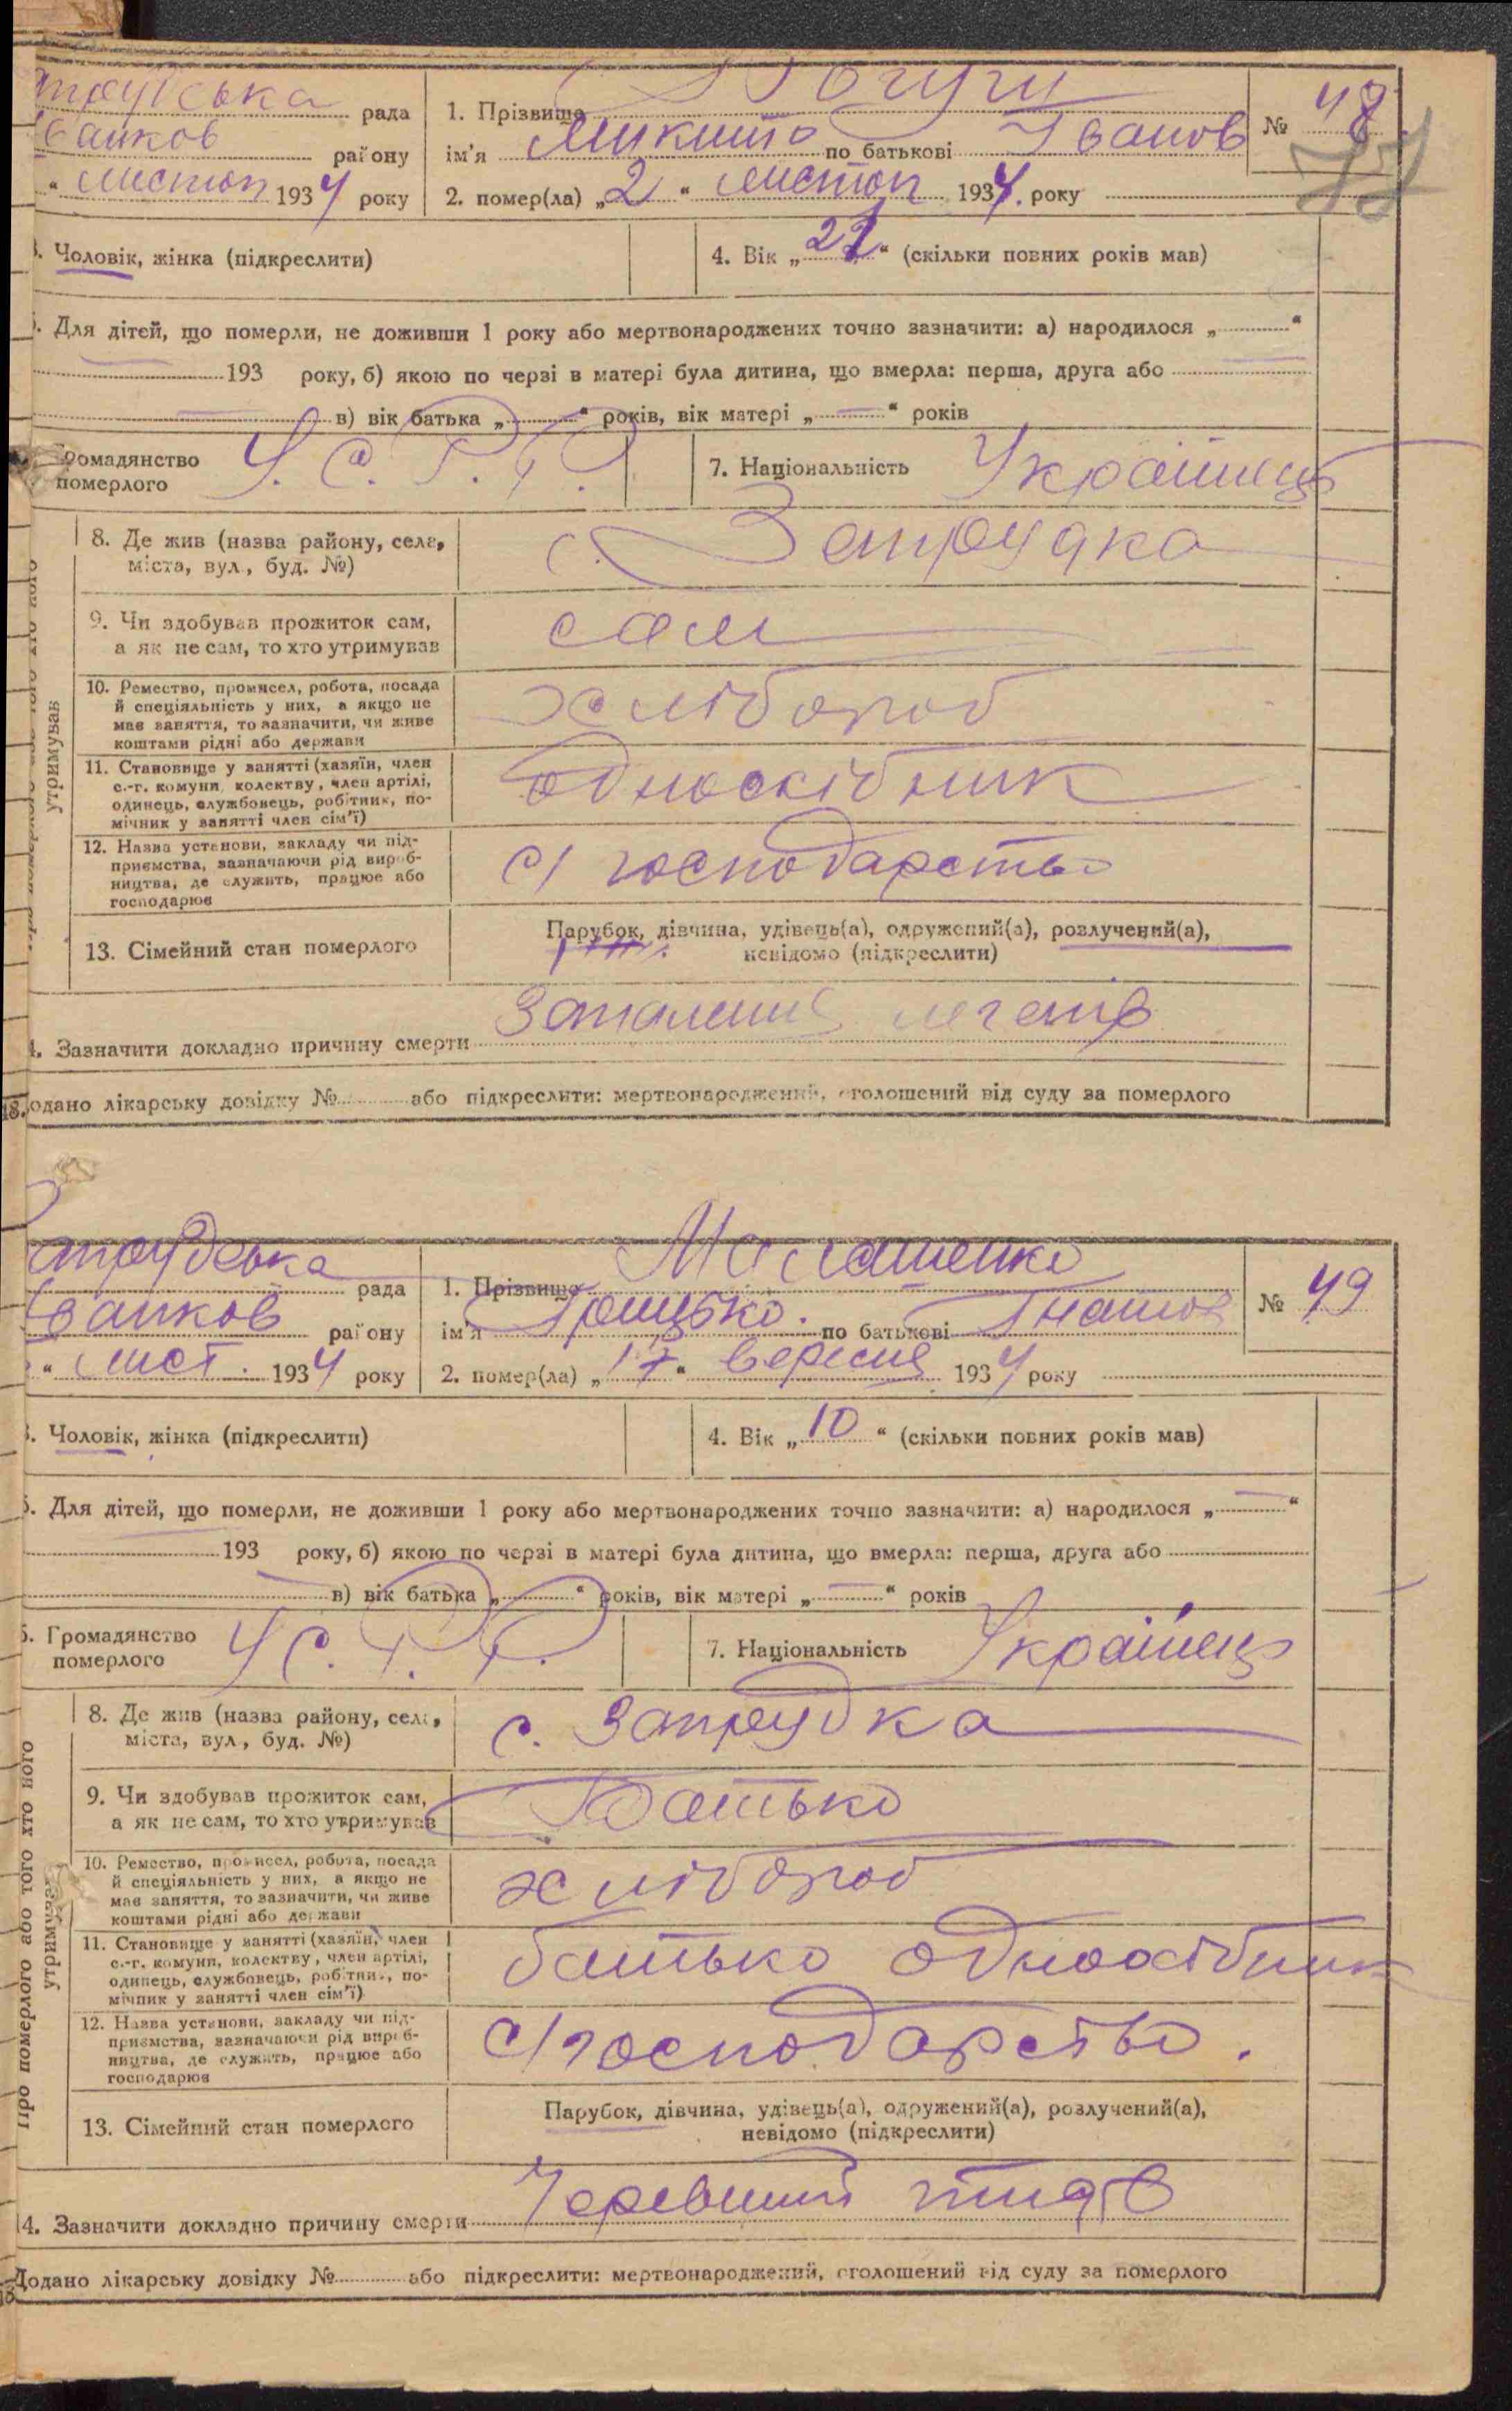 трудська рада
1. Прізвище
№ 48
ванков району
ім'я Микита по батькові Іванов
" листоп 1934 року
2. помер(ла) „2" листоп 1934. року
Чоловік, жінка (підкреслити)
4. Вік „21" (скільки повних років мав)
Для дітей, що померли, не доживши 1 року або мертвонароджених точно зазначити: а) народилося „ "
193 року, б) якою по черзі в матері була дитина, що вмерла: перша, друга або
в) вік батька „ " років, вік матері „ " років
Громадянство померлого У. С. Р. Р.
7. Національність Українець
8. Де жив (назва району, села, міста, вул., буд. №) с. Запрудка
9. Чи здобував прожиток сам, а як не сам, то хто утримував сам
10. Ремество, промисел, робота, посада й спеціяльність у них, а якщо не має заняття, то зазначити, чи живе коштами рідні або держави хлібороб
11. Становище у занятті (хазяїн, член с.-г. комуни, колектву, член артілі, одинець, службовець, робітник, помічник у занятті член сім'ї) одноосібник
12. Назва установи, закладу чи підприємства, зазначаючи рід виробництва, де служить, працює або господарює с/господарство
13. Сімейний стан померлого
Парубок, дівчина, удівець(а), одружений(а), розлучений(а),
невідомо (підкреслити)
Зазначити докладно причину смерти Запалення легенів
одано лікарську довідку № або підкреслити: мертвонароджений, оголошений від суду за померлого
Запрудська рада
1. Прізвище Малашенко
№ 49
ванков району
ім'я Грицько. по батькові Гнатов
" лист. 1934 року
2. помер(ла) „17" вересня 1934 року
Чоловік, жінка (підкреслити)
4. Вік „10" (скільки повних років мав)
5. Для дітей, що померли, не доживши 1 року або мертвонароджених точно зазначити: а) народилося „ "
193 року, б) якою по черзі в матері була дитина, що вмерла: перша, друга або
в) вік батька „ " років, вік матері „ " років
6. Громадянство померлого УС. Р. Р.
7. Національність Українець
8. Де жив (назва району, села, міста, вул., буд. №) с. Запрудка
9. Чи здобував прожиток сам, а як не сам, то хто утримував Батько
10. Ремество, промисел, робота, посада й спеціяльність у них, а якщо не має заняття, то зазначити, чи живе коштами рідні або держави хлібороб
11. Становище у занятті (хазяїн, член с.-г. комуни, колектву, член артілі, одинець, службовець, робітник, помічник у занятті член сім'ї) батько одноосібник
12. Назва установи, закладу чи підприємства, зазначаючи рід виробництва, де служить, працює або господарює с/господарство.
Про померлого або того хто його утримував
13. Сімейний стан померлого
Парубок, дівчина, удівець(а), одружений(а), розлучений(а),
невідомо (підкреслити)
14. Зазначити докладно причину смерти Черевний тиф
Додано лікарську довідку № або підкреслити: мертвонароджений, оголошений від суду за померлого